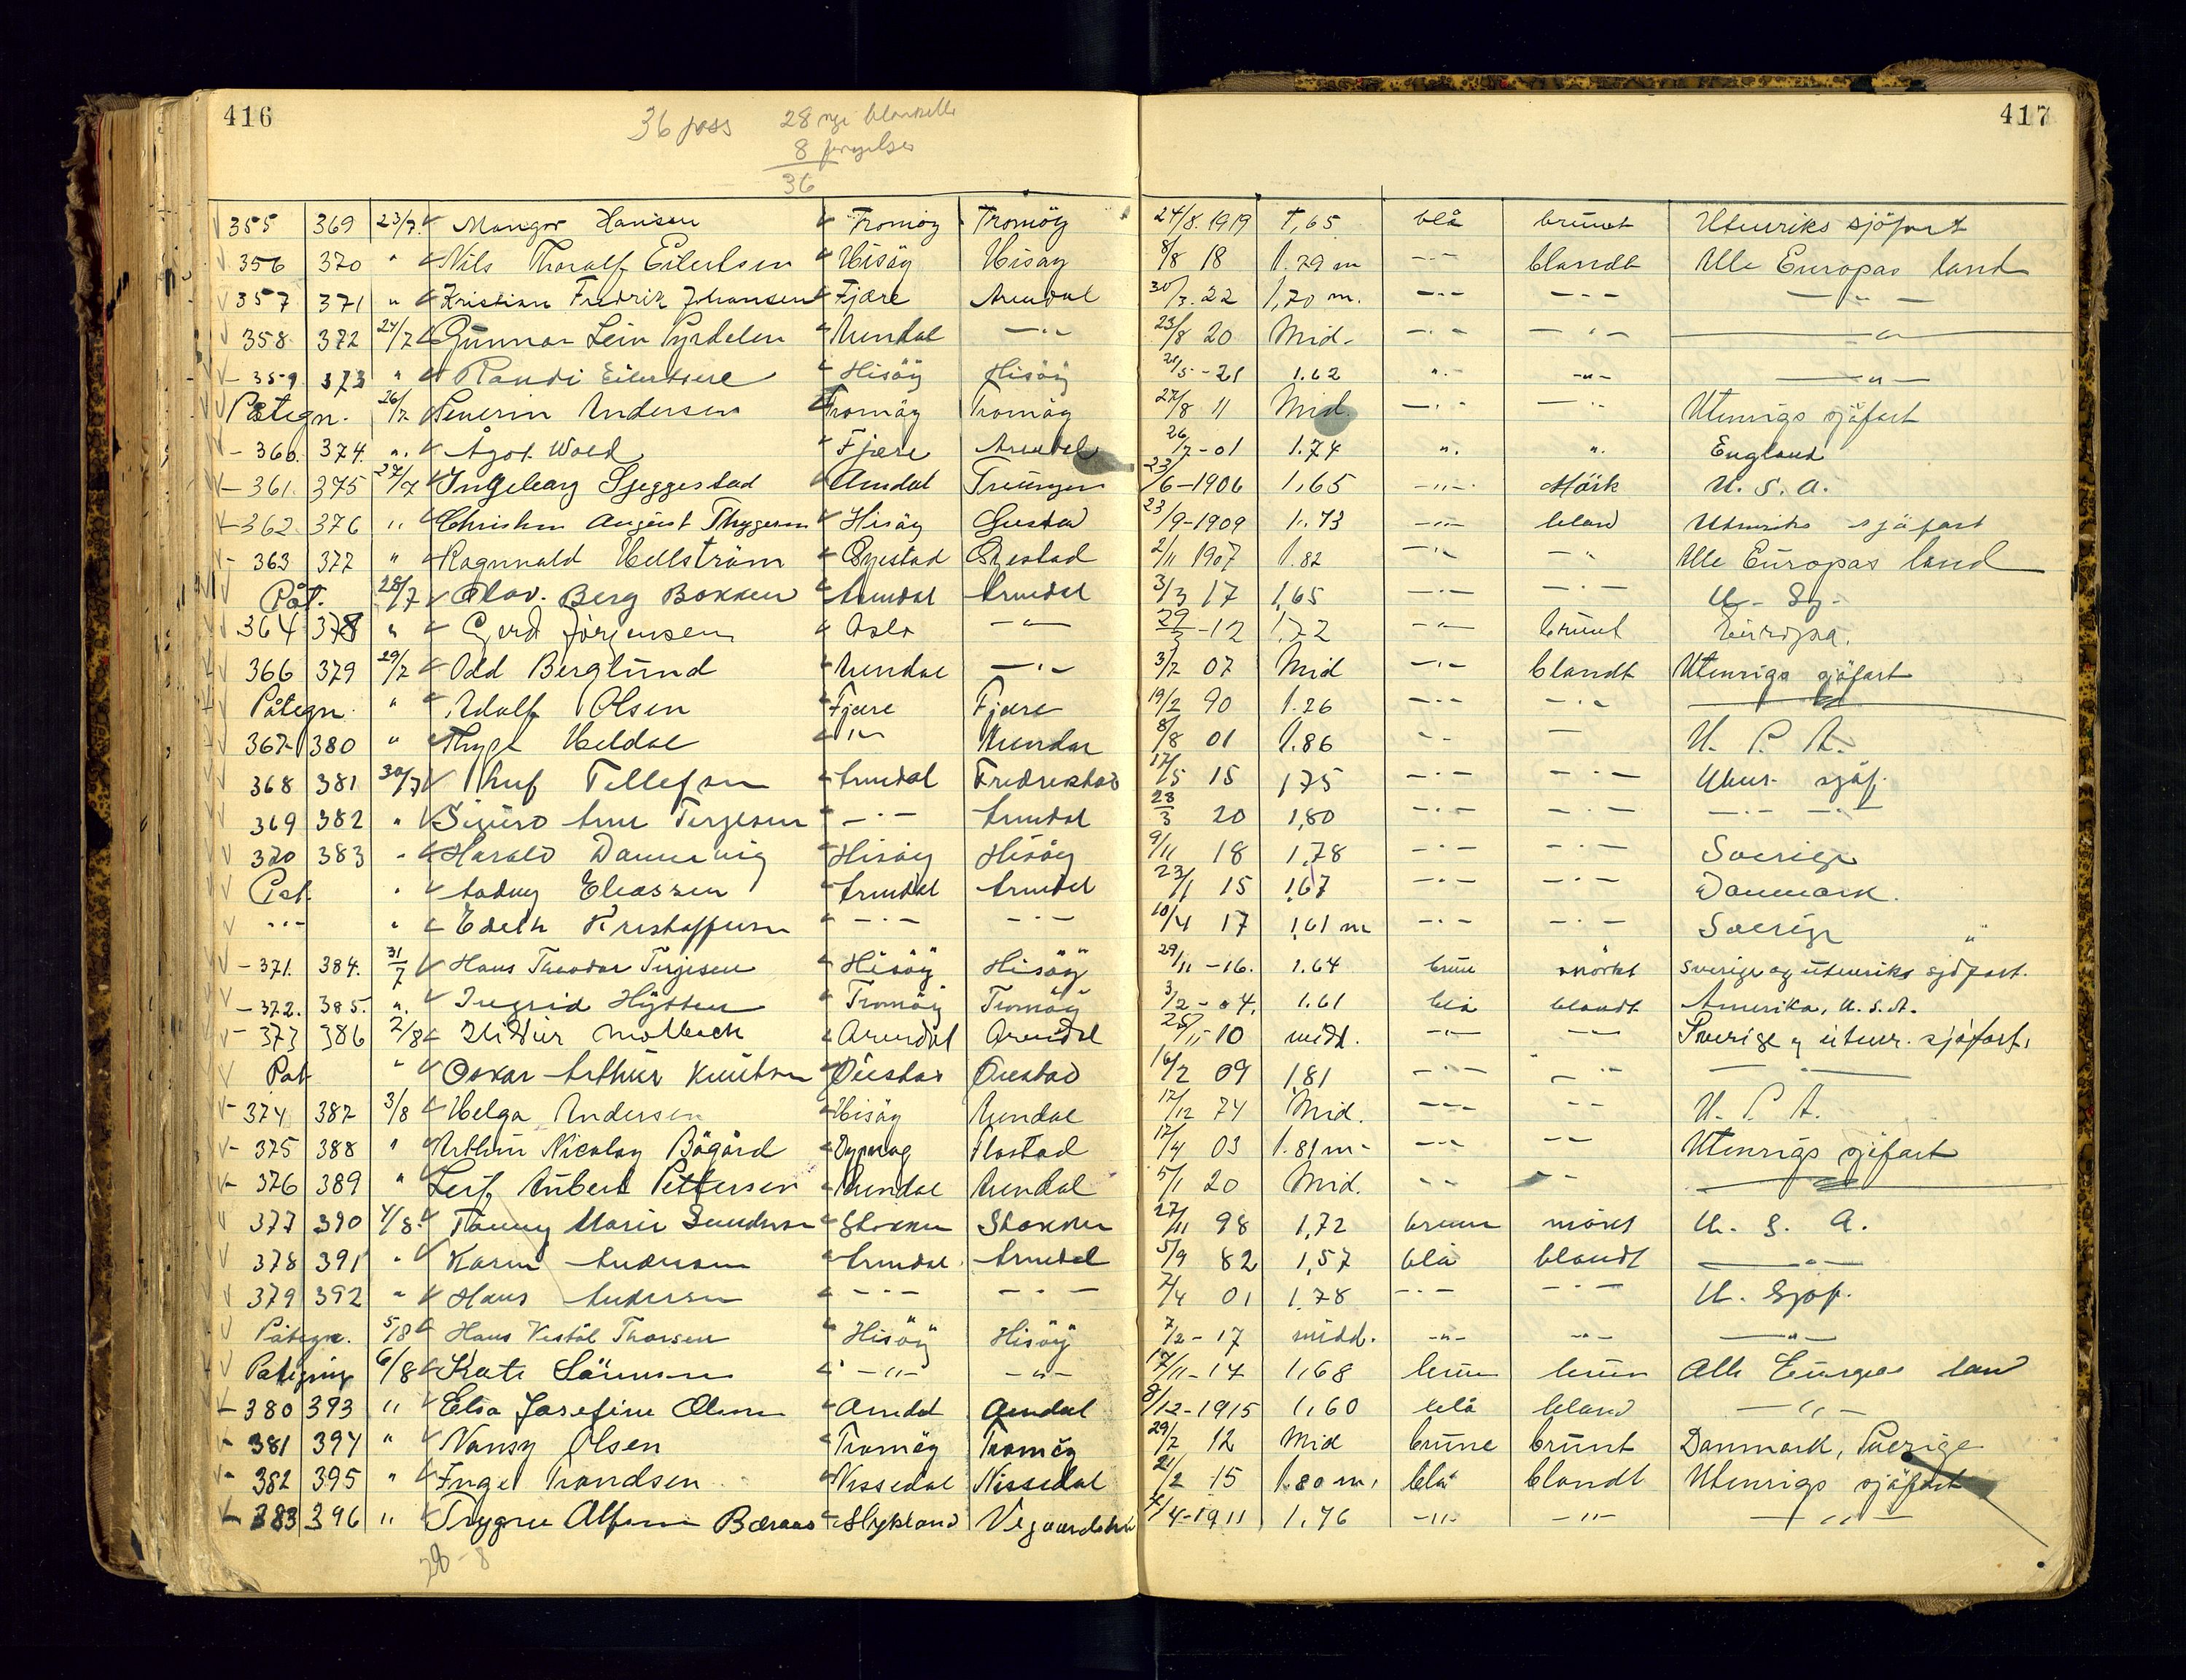 416
417
36 pass 28 nye blanketter
8
36
355 369 23/7 Mangor Hansen Tromøy Tromøy 24/8. 1919 1,65 blå brunt Utenriks sjöfart
356 370 " Nils Thoralf Eilertsen Hisöy Hisöy 8/8 18 1.79 m -"- blandt Alle Europas land
357 371 " Kristian Fredrik Johansen Fjære Arendal 30/3. 22 1,70 m. -"- -"- -"-
358 372 24/7 Gunnar Lein Pyrdelen Arendal -"- 23/8 20 Mid. -"- -"- -"-
359 373 " Randi Eilertsen Hisöy Hisöy 21/5 - 21 1.62 " -"- -"-
Påtegn. 26/7 Severin Andersen Tromöy Tromöy 27/8 11 Mid. -"- -"- Utenrigs sjöfart
360. 374. " Ågot Wold Fjære Arendal 26/7 - 01 1.74 " " England
361. 375 27/7 Ingeborg Sjeggestad Arendal Treungen 23/6 - 1906 1,65 -"- Mörk U. S. A.
362. 376 " Christen August Thygesen Hisöy 23/9 - 1909 1.73 -"- bland Utenriks sjöfart
363 377 " Ragnvald Hellström Öyestad Öyestad 2/11 1907 1.82 -"- -"- Alle Europas land
Påt. 28/7 Olav. Berg Bokken Arendal Arendal 3/3 17 1,65 -"- -"- U. Sj.
364 378 " Gerd Jörgensen Oslo -"- 29/3 - 12 1,72 -"- brunt Europa.
366 379 29/7 Odd Berglund Arendal -"- 3/7 07 Mid -"- blandt Utenrigs sjöfart
Påtegn. " Adolf Olsen Fjære Fjære 19/2 90 1.76 -"- -"- -"-
367 380 " Heldal -"- Arendal 8/8 01 1.86 -"- - U. S. A.
368 381 30/7 Tellefsen Arendal Fredrikstad 17/5 15 1,75 -"- -"- Utenr. sjöf.
369 382 " Sigurd Arne Terjesen -"- Arendal 28/3 20 1,80 -"- -"- -"- -"-
370 383 " Harald Dannevig Hisöy Hisöy 9/11 18 1,78 -"- -"- Sverige
Påt. " Eliassen Arendal Arendal 23/1 15 1,67 -"- -"- Danmark.
-"- " Edith Kristoffersen -"- -"- 10/4 17 1,61 m -"- -"- Sverige
371. 384. 31/7 Hans Theodor Terjesen Hisöy Hisöy 29/11 - 16. 1.64 brun mörkt Sverige og utenriks sjöfart.
372. 385. " Ingrid Hytten Tromöy Tromöy 3/2 - 04. 1.61 blå blandt Amerika, U.S.A.
373 386 2/8 Molbech Arendal Arendal 25/11 - 10 midt. -"- -"- Sverige og utenr. sjöfart.
Påt. " Oskar Arthur Knutsen Öiestad Öiestad 16/2 09 1,81 -"- -"- -"-
374. 387 3/8 Helga Andersen Hisöy Arendal 17/12 74 Mid. -"- -"- U. S. A.
375 388 " Arthur Nicolay Bögård Dypvåg Flostad 17/4 03 1.81 m -"- -"- Utenrigs sjöfart
376 389 " Leif Hubert Pettersen Arendal Arendal 5/1 20 Mid. -"- -"- -"-
377 390 4/8 Fanny Marie Gundersen Stokken Stokken 27/11 98 1,72 brun mörkt U. S. A.
378 391 " Karen Andersen Arendal Arendal 5/9 82 1,57 blå blandt -"-
379 392 " Hans Andersen -"- -"- 7/4 01 1.78 -"- -"- U. Sjöf.
Påtegn. 5/8 Hans Vestöl Thorsen Hisöy Hisöy 7/2 - 17 midd. -"- -"- -"-
Påtegning 6/8 Kate Sörensen -"- -"- 17/11 - 14 1,68 brun brun Alle Europas land
380 393 " Elsa Josefine Olsen Arendal Arendal 8/12 - 1915 1,60 blå bland -"-
381 394 " Nansy Olsen Tromöy Tromöy 29/7 12 Mid brune brunt Danmark, Sverige
382 395 " Inge Trondsen Nissedal Nissedal 21/2 15 1.80 m. blå blandt Utenrigs sjöfart
383 396 " Trygve Alfsen Beraas Vegaardshei 4/4 - 1911 1,76 -"- -"- -"-
28 - 8